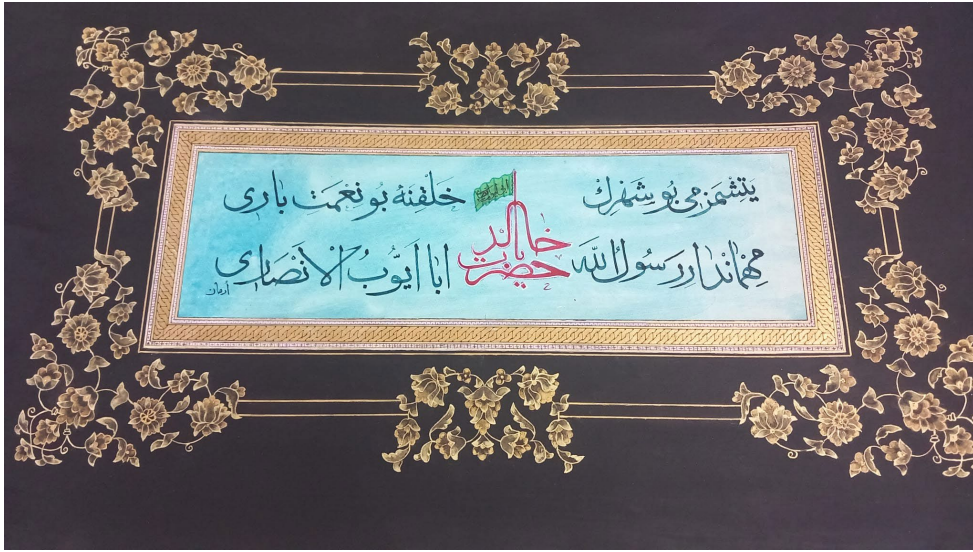 يتشمز می بو شهرك خلقنه بو نعمت باری
مهماندار رسول الله حضرت خالد ابا ايوب الانصاری